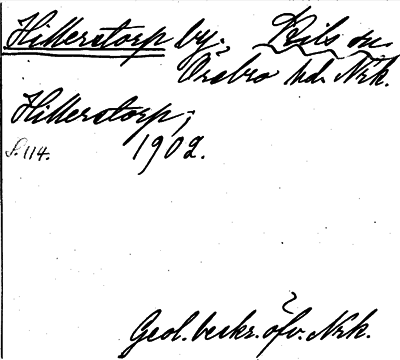 Hillerstorp by. Kils sn.
Örebro hd. Nrk.
Hillerstorp,
S. 114. 1902.
Geol. beskr. öfv. Nrk.